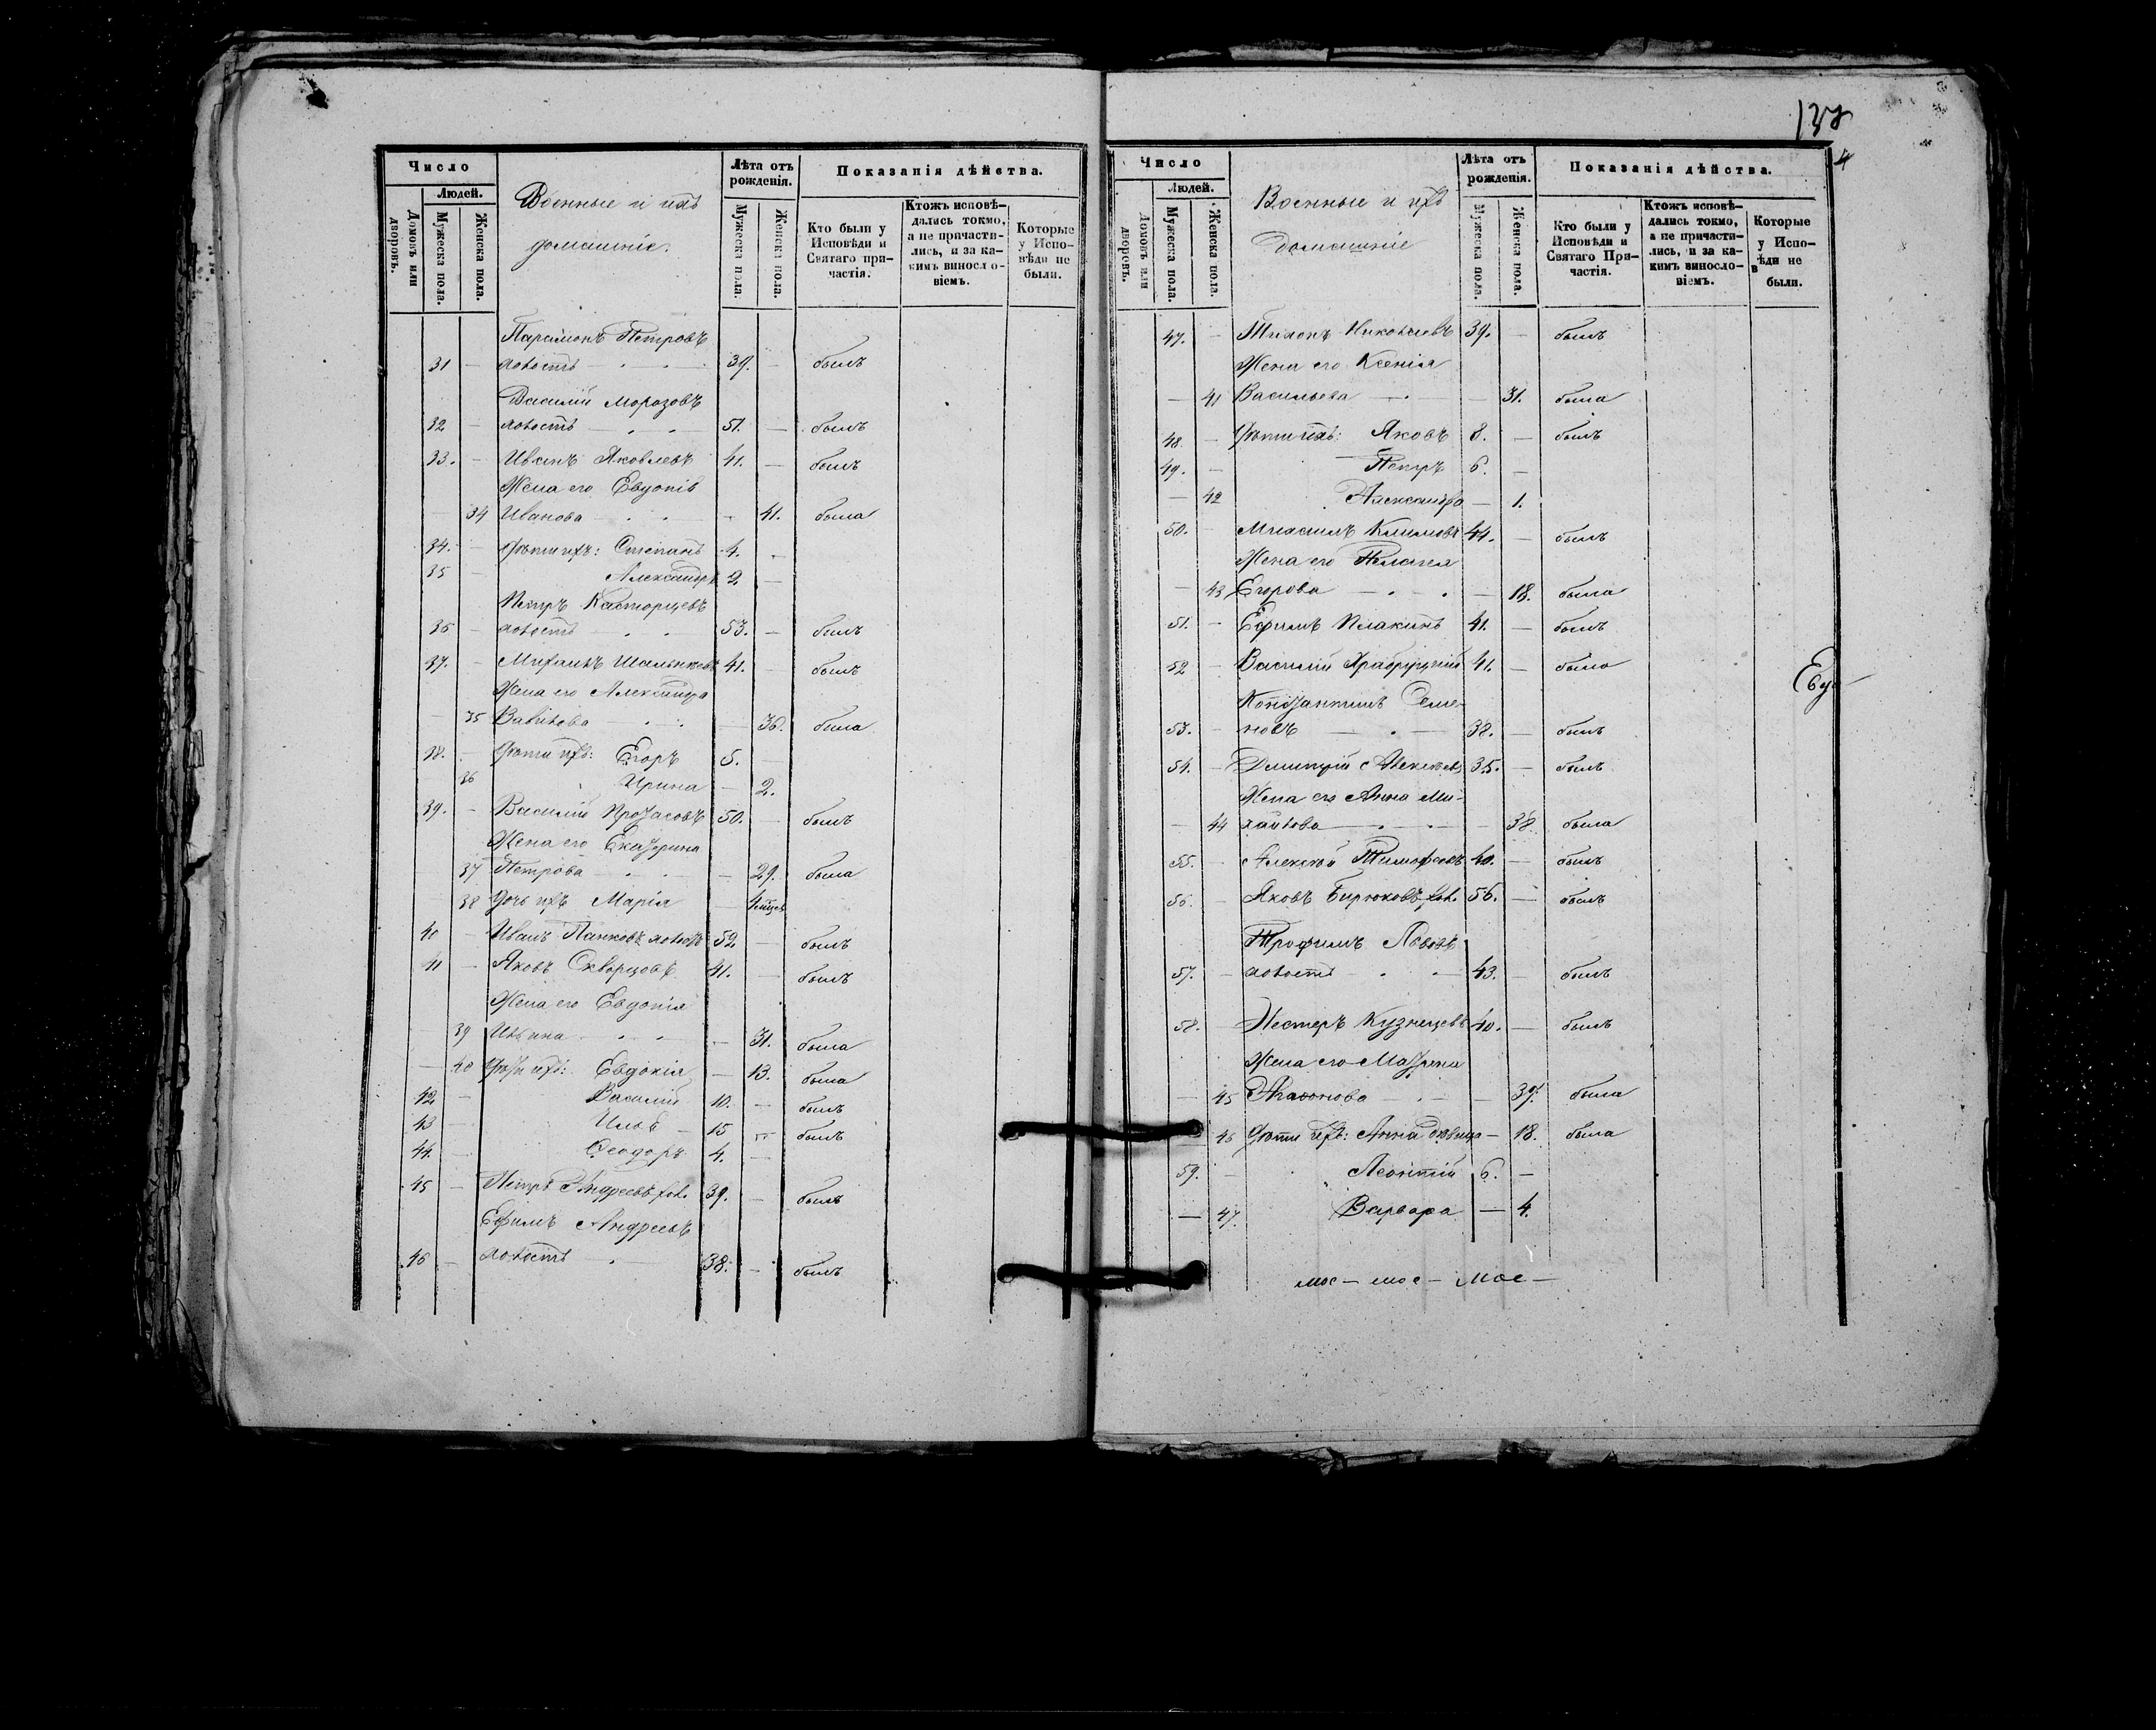 Число
Людей.
Домовъ или дворовъ.
Мужеска пола.
Женска пола.
Военные и ихъ
домашніе.
Лѣта отъ
рожденія.
Мужеска пола.
Женска пола.
Показанія дѣйства.
Кто были у
Исповѣди и
Святаго при-
частія.
Ктожъ исповѣ-
дались токмо,
а не причасти-
лись, и за ка-
кимъ винословіемъ.
Которые
у Испо-
вѣди не
были.
Парамонъ Петровъ
31 — холостъ — 39. — былъ
Василій Морозовъ
32 — холостъ — 51. — былъ
33. — Иванъ Яковлевъ 41. — былъ
Жена его Евдокія
— 34 Иванова — 41. была
34. — Дѣти ихъ: Степанъ 4. —
35 — Александръ 2 —
Петръ Касторцевъ
36 — холостъ — 53. — былъ
37. — Михаилъ 41. — былъ
Жена его Александра
— 35 — 36. была
38. — Дѣти ихъ: Егоръ 5. —
36 Ирина — 2.
39. — Василій Протасовъ 50. — былъ
Жена его Екатерина
37 Петрова — 29. была
38 Дочь ихъ Марія —
40 — Иванъ Панковъ холостъ 52 — былъ
41 — Яковъ Скворцовъ 41. — былъ
Жена его Евдокія
— 39 Ильина — 31. была
— 40 Дѣти ихъ: Евдокія — 13. была
42 — Василій 10. — былъ
43 — Илья 15 — былъ
44. — Ѳеодоръ 4. —
45 — Петръ Андреевъ хол. 39. — былъ
Ефимъ Андреевъ
46 — холостъ — 38. — былъ
138
4
Число
Людей.
Домовъ или дворовъ.
Мужеска пола.
Женска пола.
Военные и ихъ
домашніе
Лѣта отъ
рожденія.
Мужеска пола.
Женска пола.
Показанія дѣйства.
Кто были у
Исповѣди и
Святаго При-
частія.
Ктожъ исповѣ-
дались токмо,
а не причасти-
лись, и за ка-
кимъ винословіемъ.
Которые
у Испо-
вѣди не
были.
47. — Тихонъ Николаевъ 39. — былъ
Жена его Ксенія
— 41 Васильева — 31. была
48. — Дѣти ихъ: Яковъ 8. — былъ
49. — Петръ 6. —
— 42 Александра — 1.
50. — Михаилъ Климовъ 44. — былъ
Жена его Пелагея
— 43 Егорова — 18. была
51. — Ефимъ Плакинъ 41. — былъ
52 — Василій 41. — было
Константинъ Семе-
53. — новъ — 38. — былъ
54. — Димитрій Алексеевъ 35. — былъ
Жена его Анна Ми-
— 44 хайлова — 38. была
55. — Алексѣй Тимофеевъ 40. — былъ
56. — Яковъ Бирюковъ хол. 56. — былъ
Трофимъ
57. — холостъ — 43. — былъ
58. Нестеръ Кузнецовъ 40. — былъ
Жена его Матрена
— 45 — 39. была
46 Дѣти ихъ: Анна дѣвица — 18. была
59. — Леонтій 6. —
— 47. Варвара — 4.